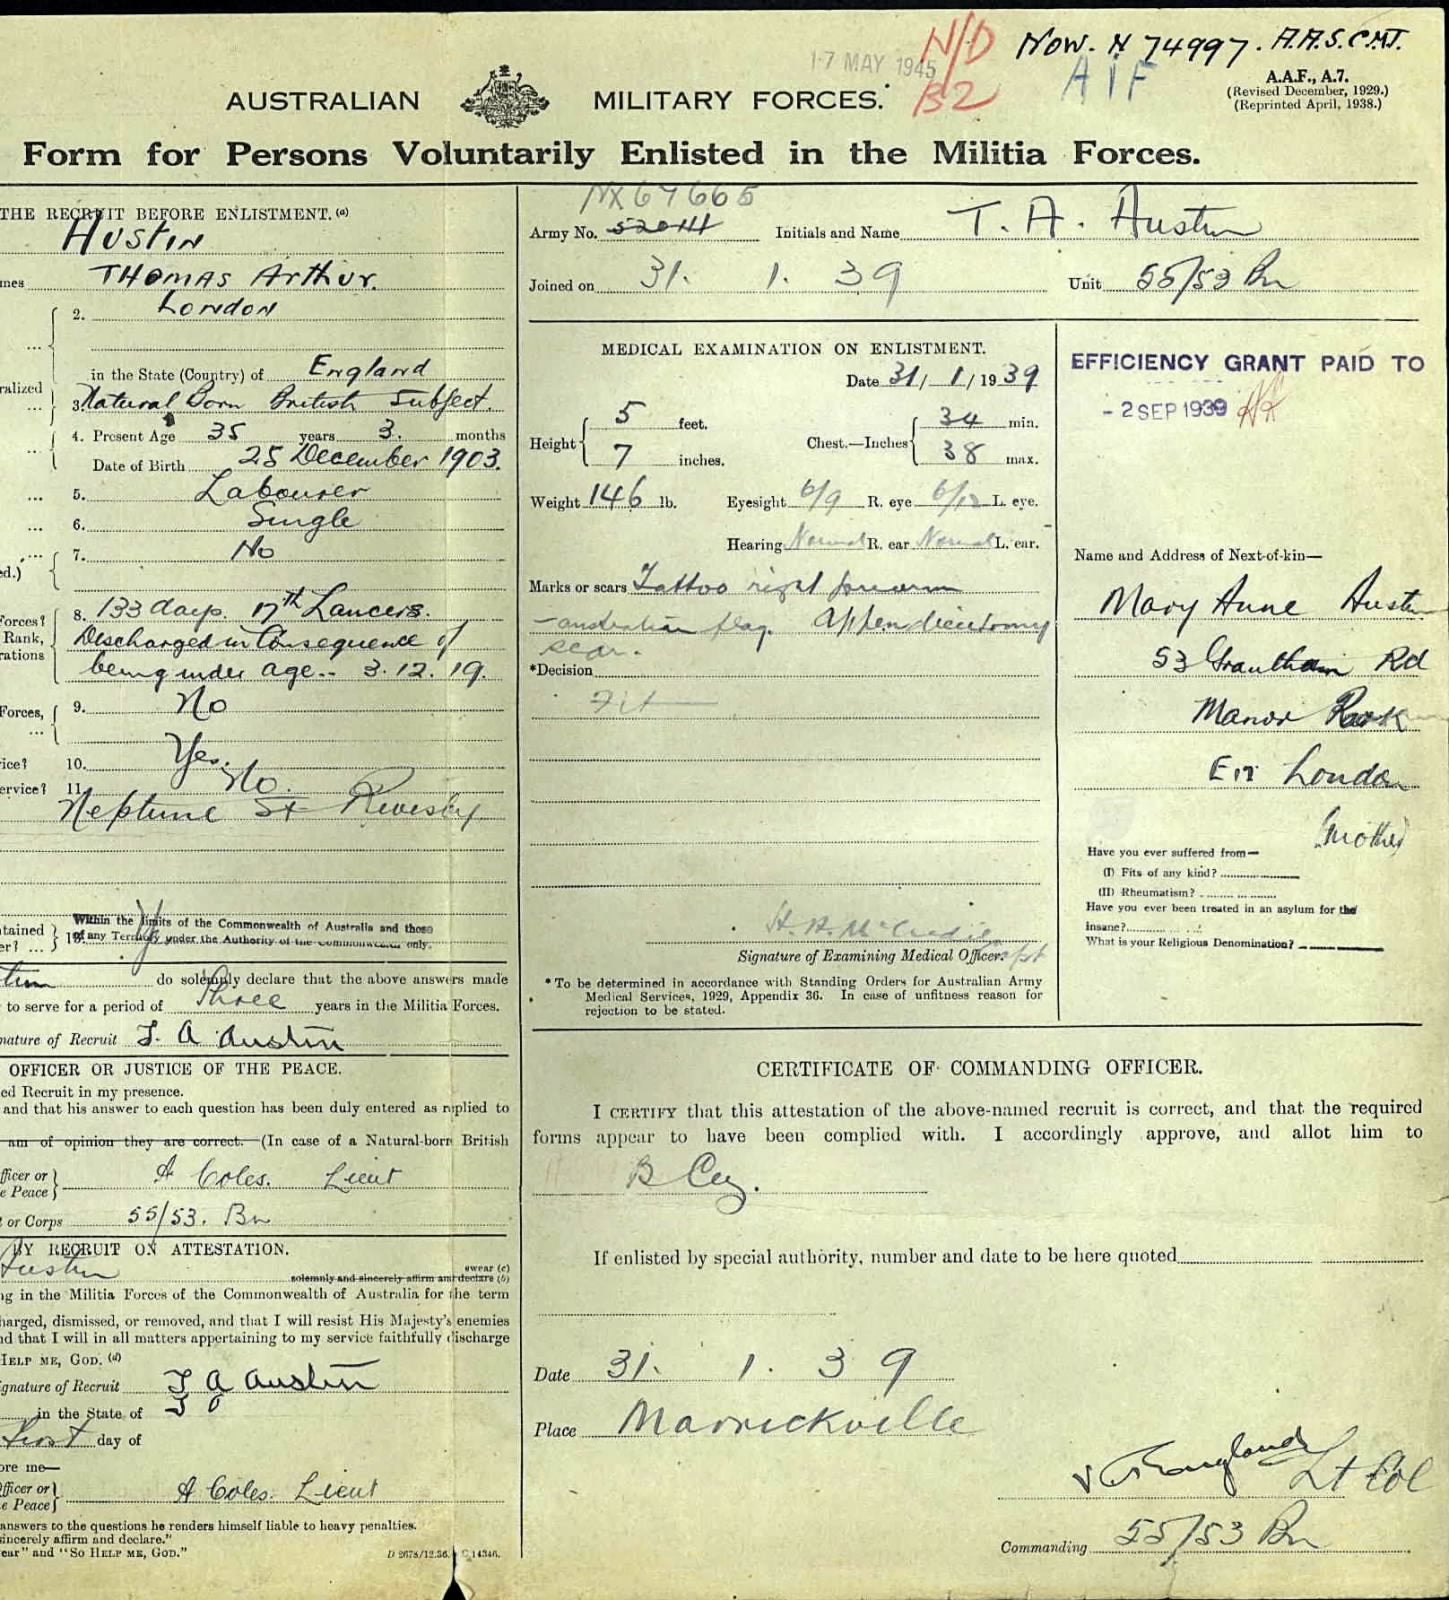 17 MAY 1945
N/D
B2
Now. N 74997. A.A.S.C.M.T.
AIF
A.A.F., A.7.
(Revised December, 1929.)
(Reprinted April, 1938.)
AUSTRALIAN MILITARY FORCES.
Form for Persons Voluntarily Enlisted in the Militia Forces.
THE RECRUIT BEFORE ENLISTMENT. (a)
AUSTIN
mes THOMAS Arthur.
2. London
... in the State (Country) of England
ralized
... 3. Natural Born British Subject.
4. Present Age 35 years 3. months
... Date of Birth 25 December 1903.
... 5. Labourer
... 6. Single
... 7. No
ed.)
Forces? 8. 133 days. 17th Lancers.
Rank, Discharged in Consequence of
rations being under age.. 3.12.19.
Forces, 9. No
...
ice? 10. Yes.
ervice? 11. No.
Neptune St Revesby
tained Within the limits of the Commonwealth of Australia and those
er? ... of any Territory under the Authority of the Commonwealth only.
do solemnly declare that the above answers made
to serve for a period of Three years in the Militia Forces.
nature of Recruit T. A Austin
OFFICER OR JUSTICE OF THE PEACE.
ed Recruit in my presence.
and that his answer to each question has been duly entered as replied to
am of opinion they are correct. (In case of a Natural-born British
fficer or
e Peace A Coles. Lieut
t or Corps 55/53. Bn
BY RECRUIT ON ATTESTATION.
Austin
swear (c)
solemnly and sincerely affirm and declare (b)
ng in the Militia Forces of the Commonwealth of Australia for the term
harged, dismissed, or removed, and that I will resist His Majesty's enemies
nd that I will in all matters appertaining to my service faithfully discharge
HELP ME, GOD. (d)
ignature of Recruit T A Austin
in the State of
First day of
ore me—
Officer or
e Peace A Coles. Lieut
answers to the questions he renders himself liable to heavy penalties.
sincerely affirm and declare."
ear" and "So HELP ME, GOD."
D 2678/12.36. C 14346.
NX67665
Army No. 52044 Initials and Name T. A. Austin
Joined on 31. 1. 39 Unit 55/53 Bn
MEDICAL EXAMINATION ON ENLISTMENT.
Date 31/1/1939
Height 5 feet. 7 inches. Chest.—Inches 34 min. 38 max.
Weight 146 lb. Eyesight 6/9 R. eye 6/12 L. eye.
Hearing Normal R. ear Normal L. ear.
Marks or scars Tattoo right forearm
- australian flag. Appendicectomy
scar.
*Decision
Fit
H. A. Capt
Signature of Examining Medical Officer.
* To be determined in accordance with Standing Orders for Australian Army
Medical Services, 1929, Appendix 36. In case of unfitness reason for
rejection to be stated.
EFFICIENCY GRANT PAID TO
- 2 SEP 1939
Name and Address of Next-of-kin—
Mary Anne Austin
53 Grantham Rd
Manor Park
E12 London
(mother)
Have you ever suffered from—
(I) Fits of any kind?
(II) Rheumatism?
Have you ever been treated in an asylum for the
insane?
What is your Religious Denomination?
CERTIFICATE OF COMMANDING OFFICER.
I CERTIFY that this attestation of the above-named recruit is correct, and that the required
forms appear to have been complied with. I accordingly approve, and allot him to
B Coy.
If enlisted by special authority, number and date to be here quoted
Date 31. 1. 39
Place Marrickville
Lt Col
Commanding 55/53 Bn